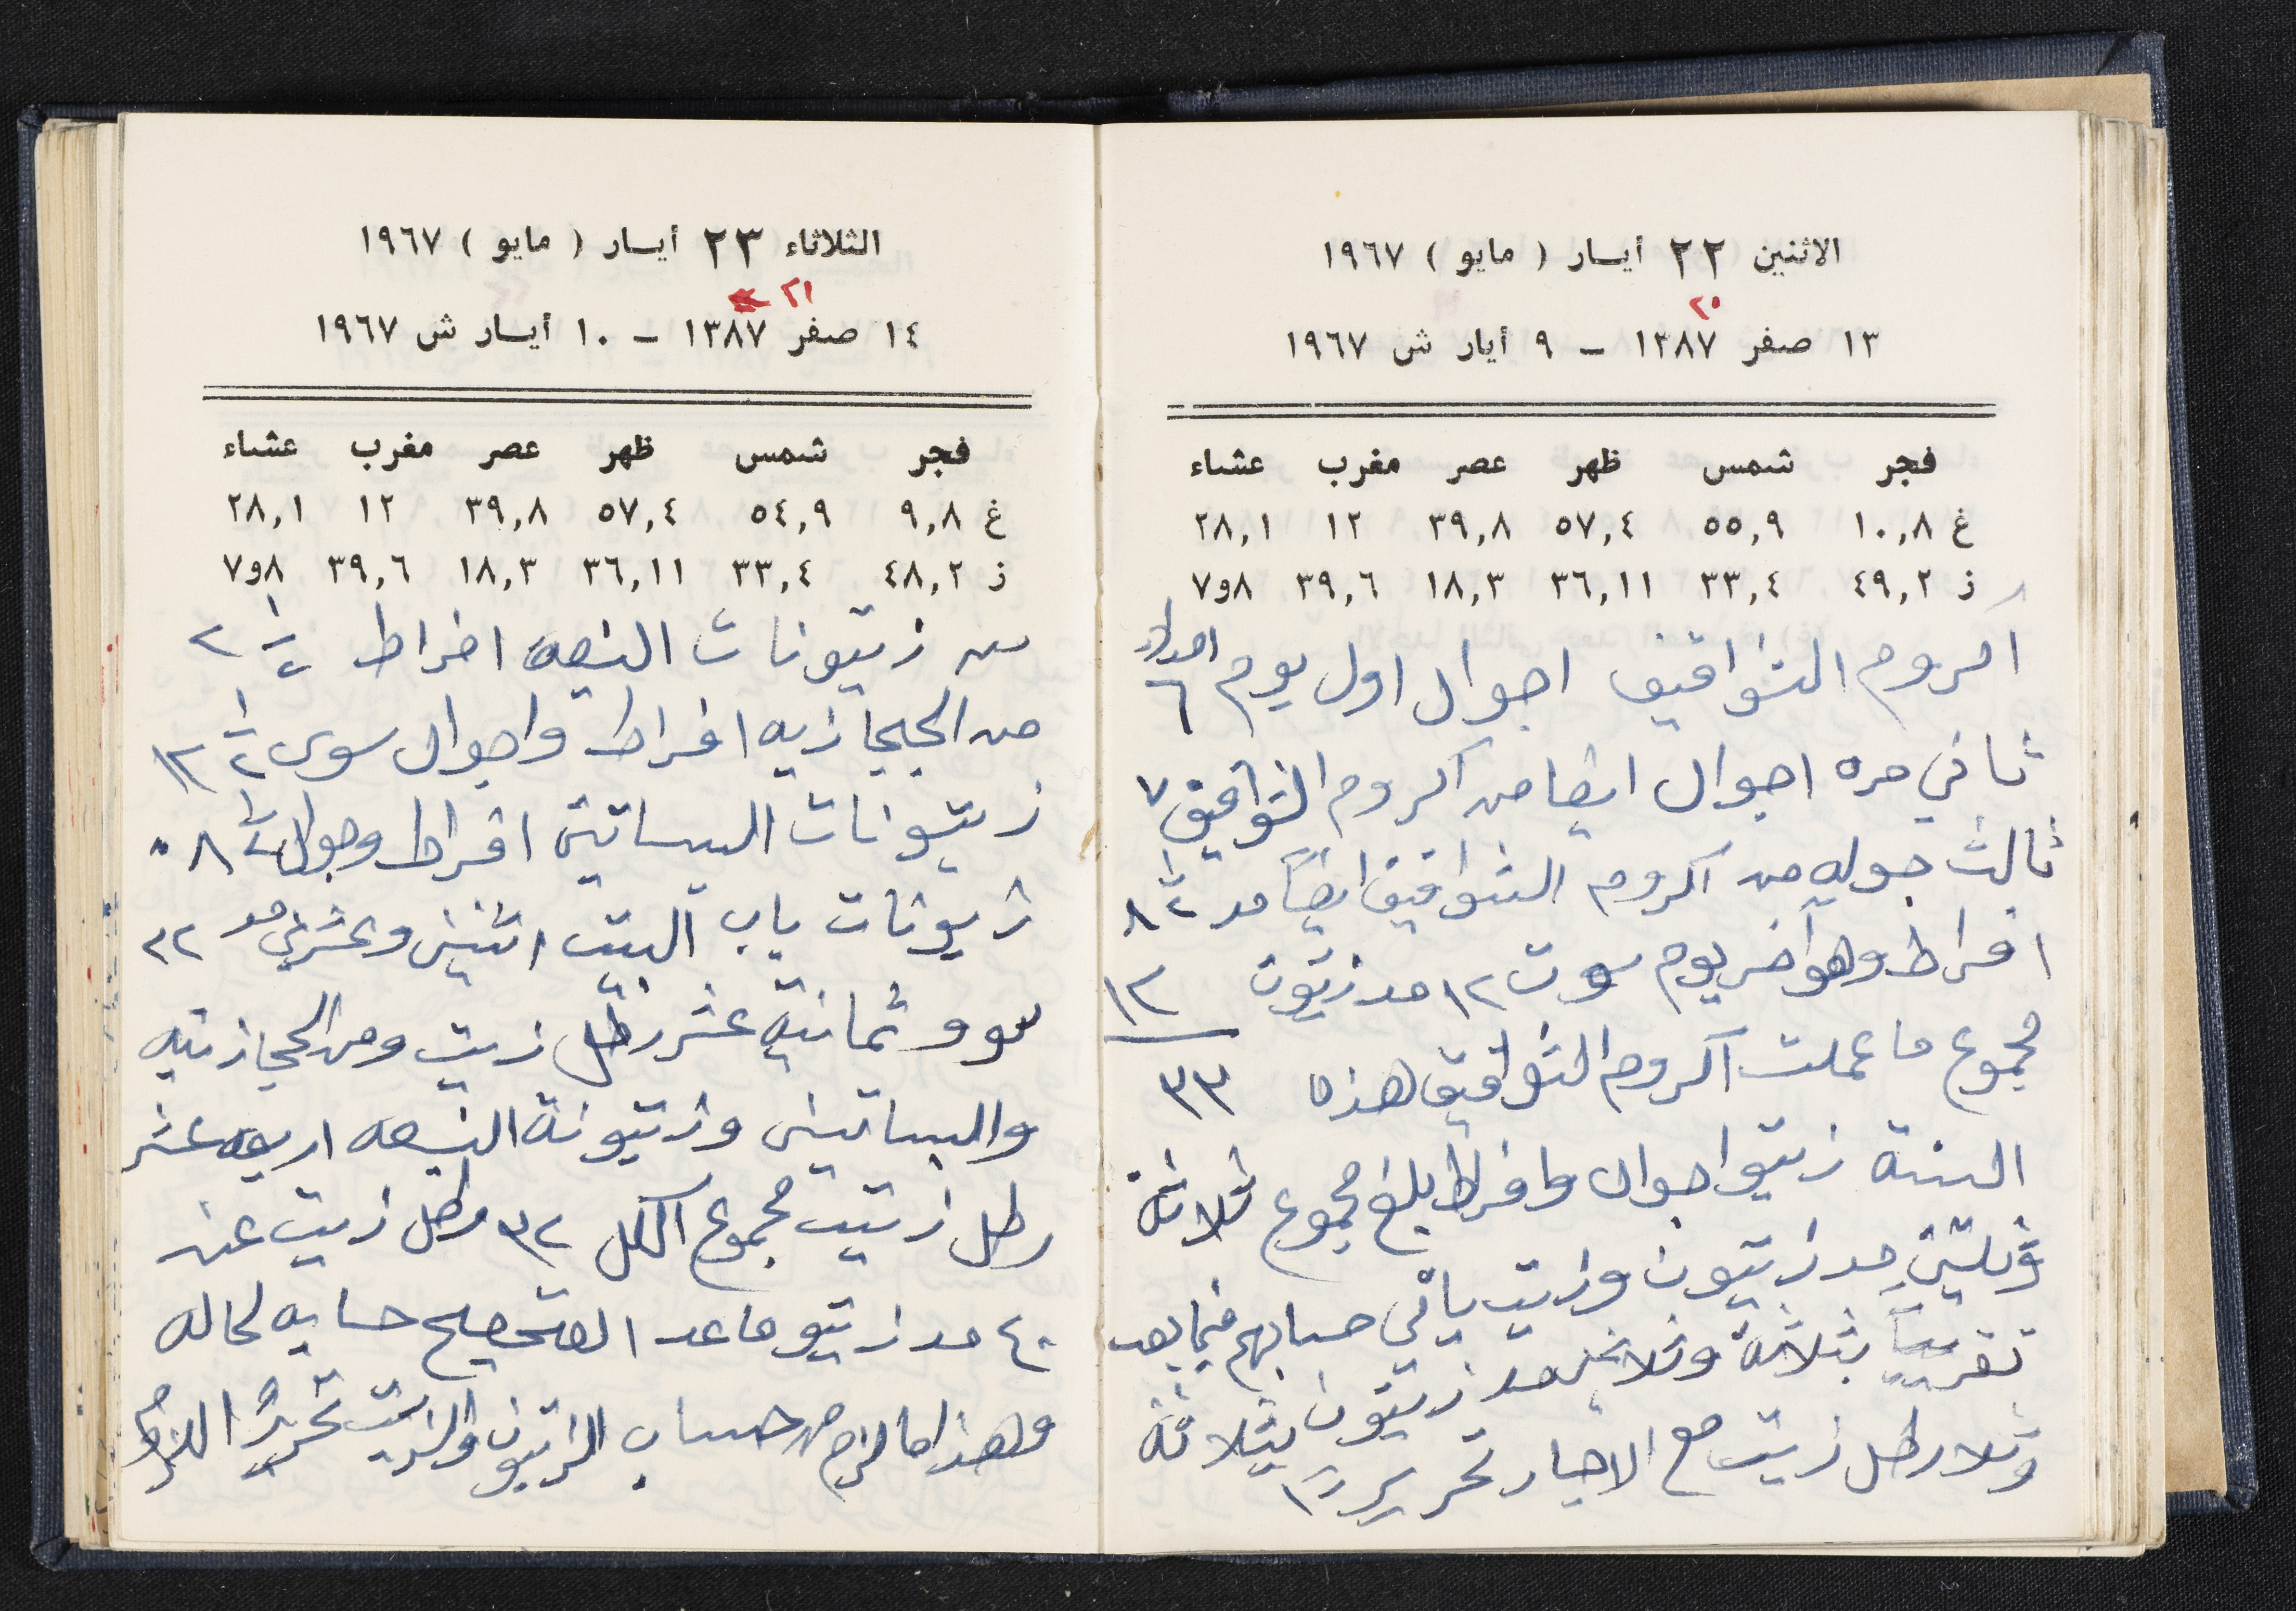 الاثنين ٢٢ أيار ( مايو ) ١٩٦٧
٢٠
١٣ صفر ١٣٨٧ – ٩ أيار ش ١٩٦٧
فجر شمس ظهر عصر مغرب عشاء
غ ١٠,٨ ٥٥,٩ ٥٧,٤ ٣٩,٨ ١٢ ٢٨,١
ز ٤٩,٢ ٣٣,٤ ٣٦,١١ ١٨,٣ ٣٩,٦ ٨و٧
اكروم الشواقيف اجوال اول يوم امداد ٦
ثاني مره اجوال ايضا من اكروم الشواقيف ٧
ثالث جوله من اكروم الشواقيف ايضاً مد ١/٢ ٨
افراط وهو آخر يوم سوت ١٢ مد زيتون ١٢
مجموع ما عملت اكروم الشواقيف هذه ٣٣
السنة زيتو اجوال وافراط بلغ مجموع ثلاثة
وثلثين مد زيتون وزيت يأتي حسابهم فيما بعد
تقريباً بثلاثة وثلاثين مد زيتون بثلاثة
وثلا رطل زيت مع الاجبار تحريراً
الثلاثاء ٢٣ أيسار ( مايو ) ١٩٦٧
٢١
١٤ صفر ١٣٨٧ – ١٠ أيسار ش ١٩٦٧
فجر شمس ظهر عصر مغرب عشاء
غ ٩,٨ ٥٤,٩ ٥٧,٤ ٣٩,٨ ١٢ ٢٨,١
ز ٤٨,٢ ٣٣,٤ ٣٦,١١ ١٨,٣ ٣٩,٦ ٨و٧
من زيتونات النبعه افراط ١/٢ ٢
من الحيجازيه افراط واجوال سوى ١/٢ ١٢
زيتونات البساتين افراط وجوال ١/٢ ٨
زيونات باب البيت اثنين وعشرين مد ٢٢
سوو ثمانية عشر رطل زيت ومن الحجازيه
والبساتين وزيتونة النبعه اربعه عشر
رطل زيت مجموع الكل ٣٢ رطل زيت عن
٤٠ مد زيتو ما عد التصحيح حسابه لحاله
وهذا ما لزم من حساب الزيتون والزيت تحريراً للزوم